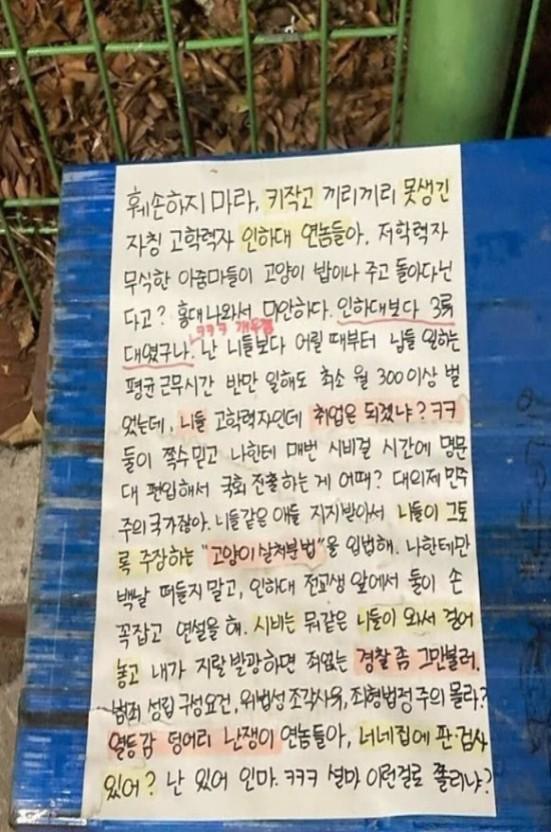 훼손하지 마라, 키작고 끼리끼리 못생긴
자칭 고학력자 인하대 연놈들아, 저학력자
무식한 아줌마들이 고양이 밥이나 주고 돌아다닌
다고? 홍대 나와서 미안하다. 인하대보다 3류
ㅋㅋㅋ 개웃겨
대였구나. 난 니들보다 어릴 때부터 닙들 일하는
평균 근무시간 반만 일해도 최소 월 300이상 벌
었는데, 니들 고학력자인데 취업은 되겠냐? ㅋㅋ
둘이 쪽수 믿고 나한테 매번 시비걸 시간에 명문
대 편입해서 국회 진출하는 게 어때? 대의제 민주
주의 국가잖아. 니들같은 애들 지지받아서 니들이 그토
록 주장하는 "고양이 살처분법"을 입법해. 나한테만
백날 떠들지 말고, 인하대 전교생 앞에서 둘이 손
꼭잡고 연설을 해. 시비는 뭐같은 니들이 와서 걸어
놓고 내가 지랄발광하면 죄없는 경찰 좀 그만불러.
범죄 성립 구성요건, 위법성 조각사유, 죄형법정주의 몰라?
열등감 덩어리 난쟁이 연놈들아, 너네집에 판·검사
있어? 난 있어 인마. ㅋㅋㅋ 설마 이런걸로 쫄리냐?